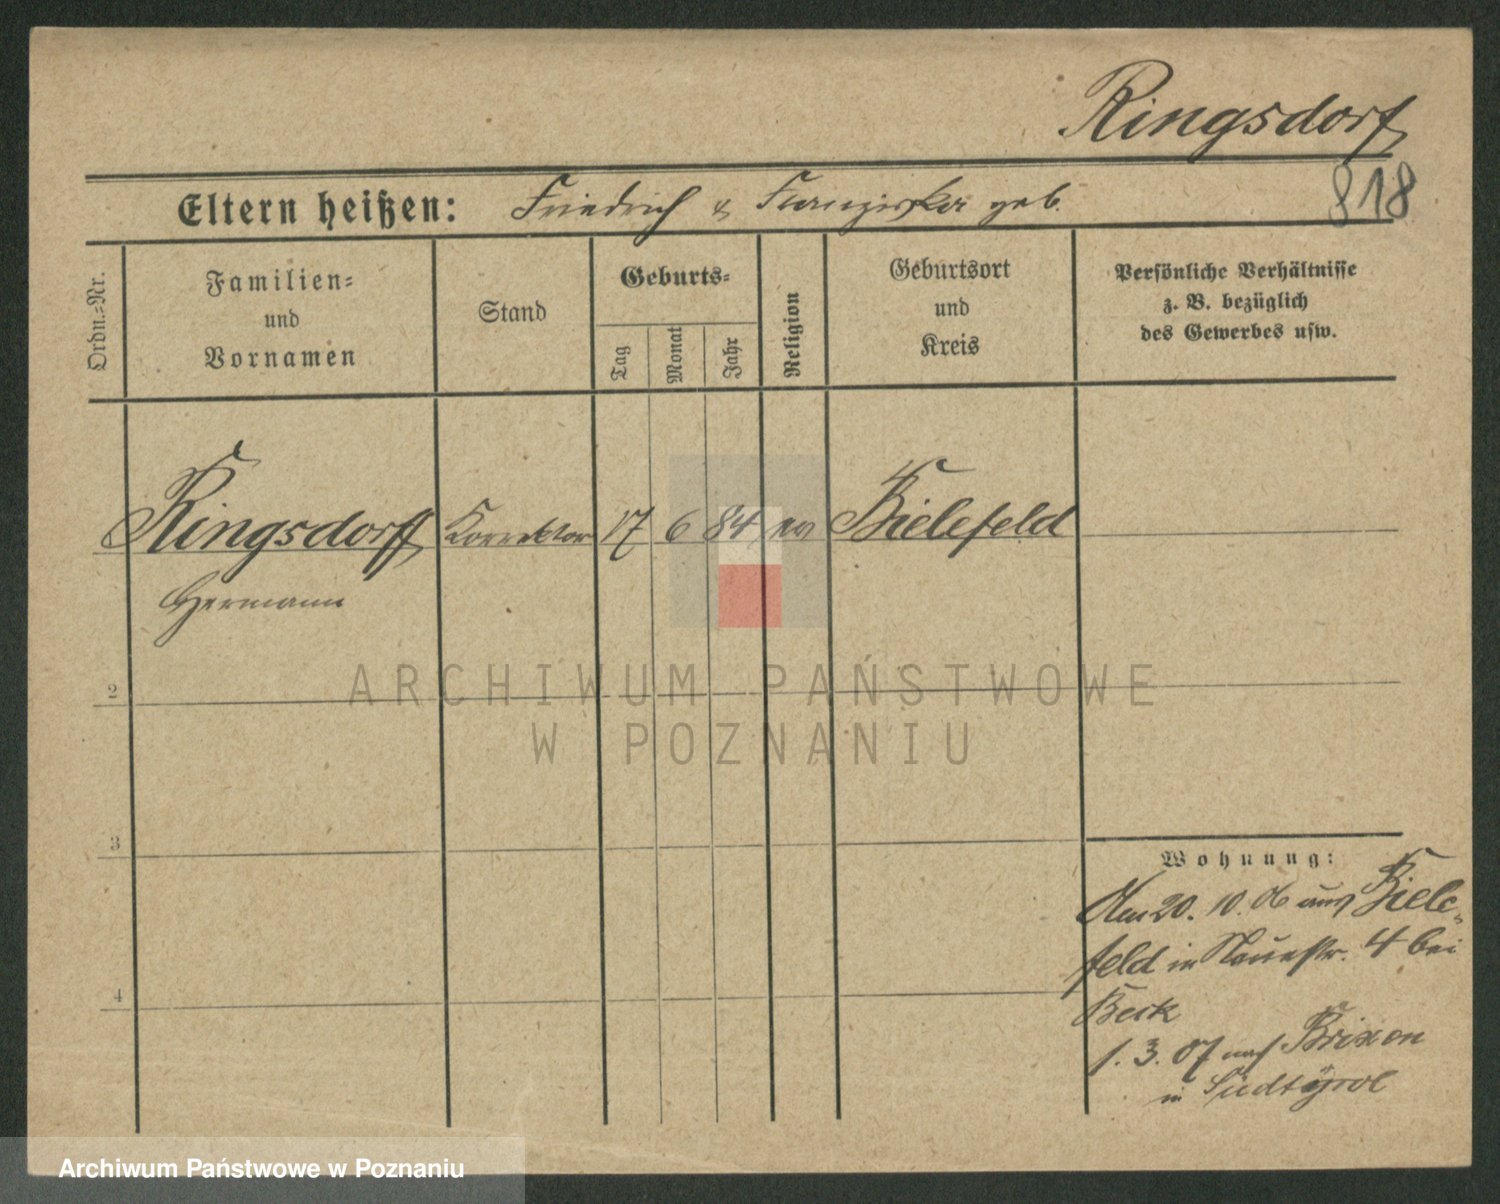 Ringsdorf
818
Eltern heißen: Friedrich & Franziska geb.
Ordn.-Nr.
Familien-
und
Vornamen
Stand
Geburts-
Tag
Monat
Jahr
Religion
Geburtsort
und
Kreis
Persönliche Verhältnisse
z. B. bezüglich
des Gewerbes usw.
Ringsdorff Korrektor 17 6 84 ev Bielefeld
Hermann
2
3
4
Wohnung:
Am 20. 10. 06 aus Biele-
feld in Neuestr. 4 bei
Beck
1. 3. 07 nach Brixen
in Südtyrol
ARCHIWUM PAŃSTWOWE
W POZNANIU
Archiwum Państwowe w Poznaniu